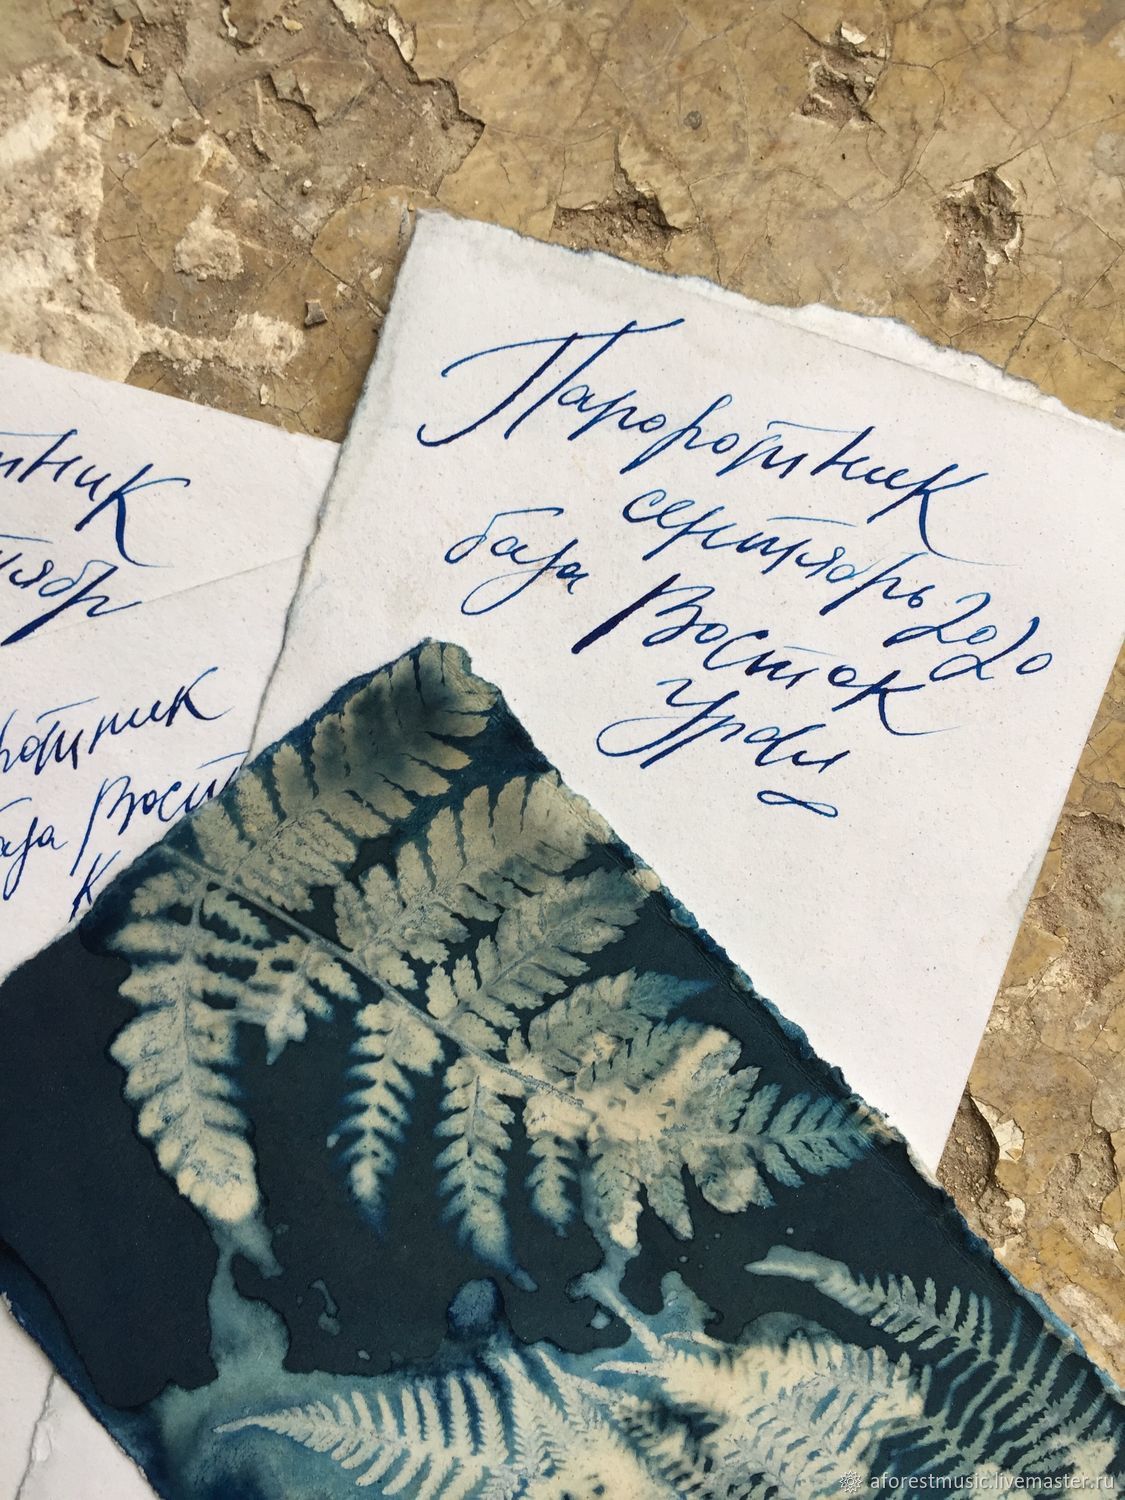 Папоротник
сентябрь 2020
база Восток
Урал
тник
тябр
ротник
база Вост
К
aforestmusic.livemaster.ru